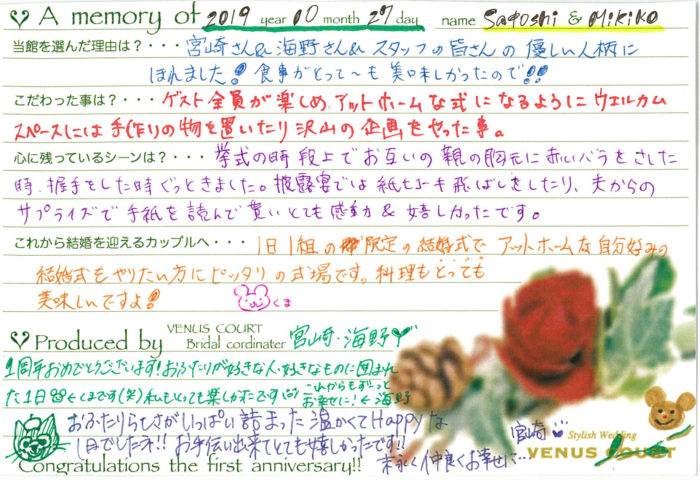 A memory of 2019 year 10 month 27 day name Satoshi & Mikiko
当館を選んだ理由は？・・・宮崎さん&海野さん&スタッフの皆さんの優しい人柄に
ほれました！食事がとって〜も美味しかったので!!
こだわった事は？・・・ゲスト全員が楽しめ、アットホームな式になるようにウェルカム
スペースには手作りの物を置いたり沢山の企画をやった事。
心に残っているシーンは？・・・挙式の時 段上でお互いの親の胸元に赤いバラをさした
時、握手をした時ぐっときました。披露宴では紙ヒコーキ飛ばしをしたり、夫からの
サプライズで手紙を読んで貰いとても感動&嬉しかったです。
これから結婚を迎えるカップルへ・・・1日1組の限定の結婚式でアットホームな自分好みの
結婚式をやりたい方にピッタリの式場です。料理もとっても
美味しいですよ！ くま
Produced by VENUS COURT Bridal cordinater 宮崎・海野
1周年おめでとうございます！おふたりが好きな人・好きなものに囲まれ
た1日 もくまです(笑)私もとても楽しかったです これからもずっとお幸せに！ 海野
おふたりらしさがいっぱい詰まった温かくてHappyな
1日でしたネ!! お手伝い出来てとても嬉しかったです!!
末永く仲良くお幸せに… 宮崎
Congratulations the first anniversary!!
Stylish Wedding
VENUS COURT